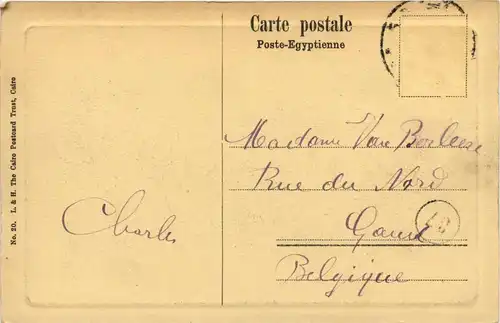 Carte postale
Poste-Egyptienne
No. 20. L & H. The Cairo Postcard Trust, Cairo
Madame Van
Rue du Nord
Gand
Belgique
Charles